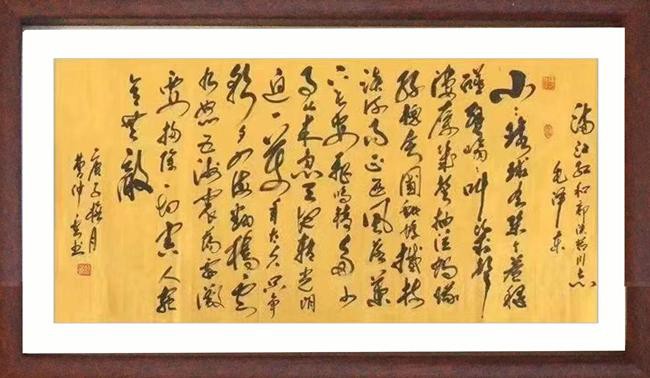 滿江紅和郭沫若同志
毛澤东
小小環球有几个蒼蝇
碰壁嗡嗡叫几声
凄厉几声抽泣螞蟻缘
槐夸大國蚍蜉撼树
谈何易正西風落葉
下長安飛鳴镝多少
事从来急天地转光阴
迫一萬年太久只争
朝夕四海翻腾云
水怒五洲震荡風雷激
要掃除一切害人虫
全無敵
庚子 月
仲 书